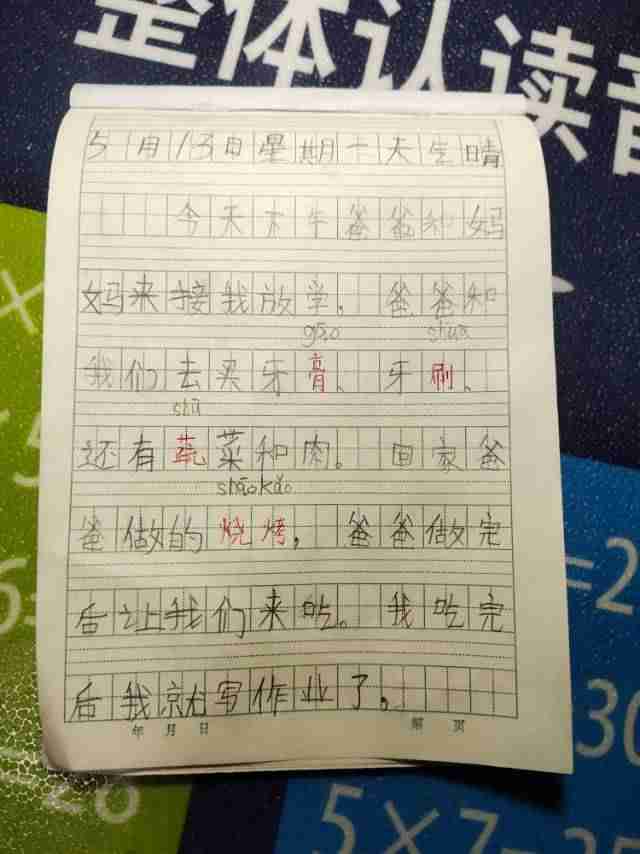 整体认读音
5月13日星期一天气晴
今天下午爸爸和妈
妈来接我放学，爸爸和
gāo shuā
我们去买牙膏、牙刷、
shū
还有蔬菜和肉。回家爸
shāo kǎo
爸做的烧烤，爸爸做完
后让我们来吃。我吃完
后我就写作业了。
年 月 日 第 页
=2
30
28
5×7=35